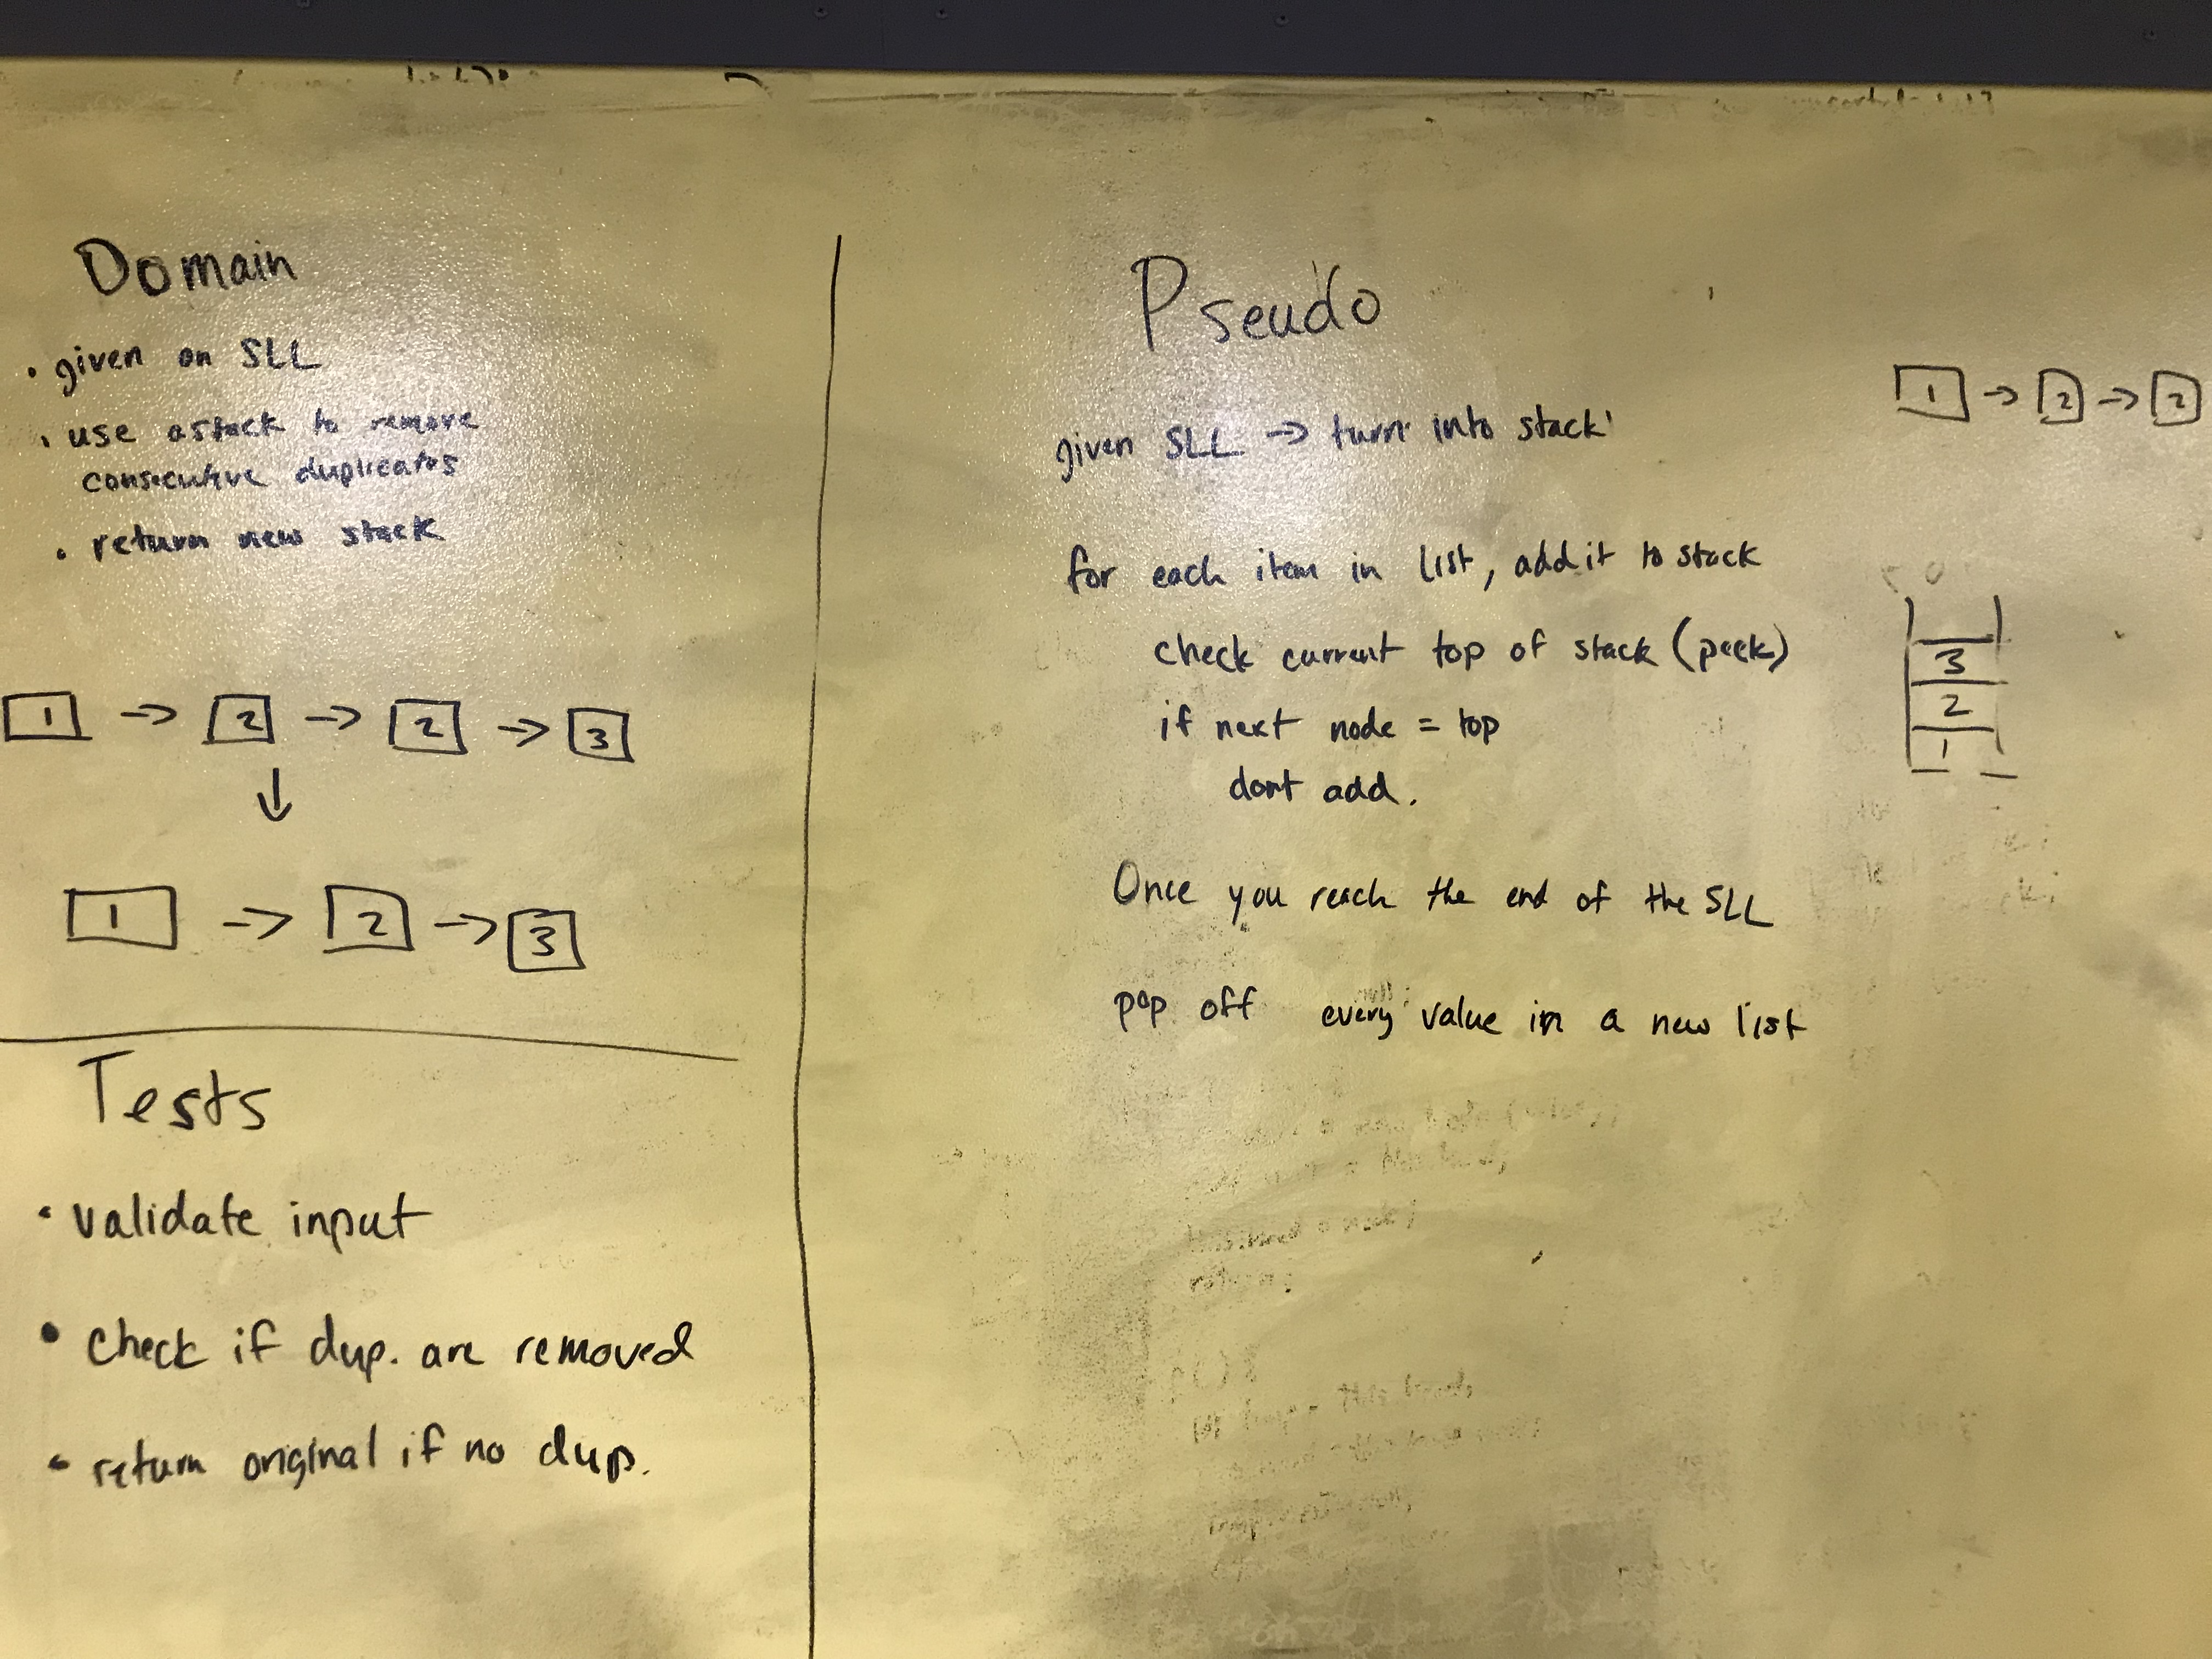 Domain
• given an SLL
• use a stack to remove
consecutive duplicates
• return new stack
1 → 2 → 2 → 3
↓
1 → 2 → 3
Tests
• validate input
• check if dup. are removed
• return original if no dup.
Pseudo
given SLL → turn into stack
for each item in list, add it to stack
check current top of stack (peek)
if next node = top
dont add.
Once you reach the end of the SLL
pop off every value in a new list
1 → 2 → 2
3
2
1